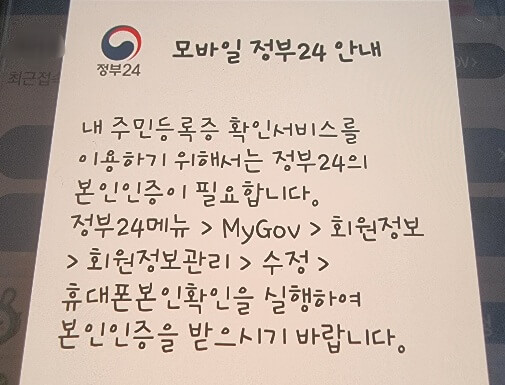 정부24
모바일 정부24 안내
최근접속
내 주민등록증 확인서비스를
이용하기 위해서는 정부24의
본인인증이 필요합니다.
정부24메뉴 > MyGov > 회원정보
> 회원정보관리 > 수정 >
휴대폰본인확인을 실행하여
본인인증을 받으시기 바랍니다.